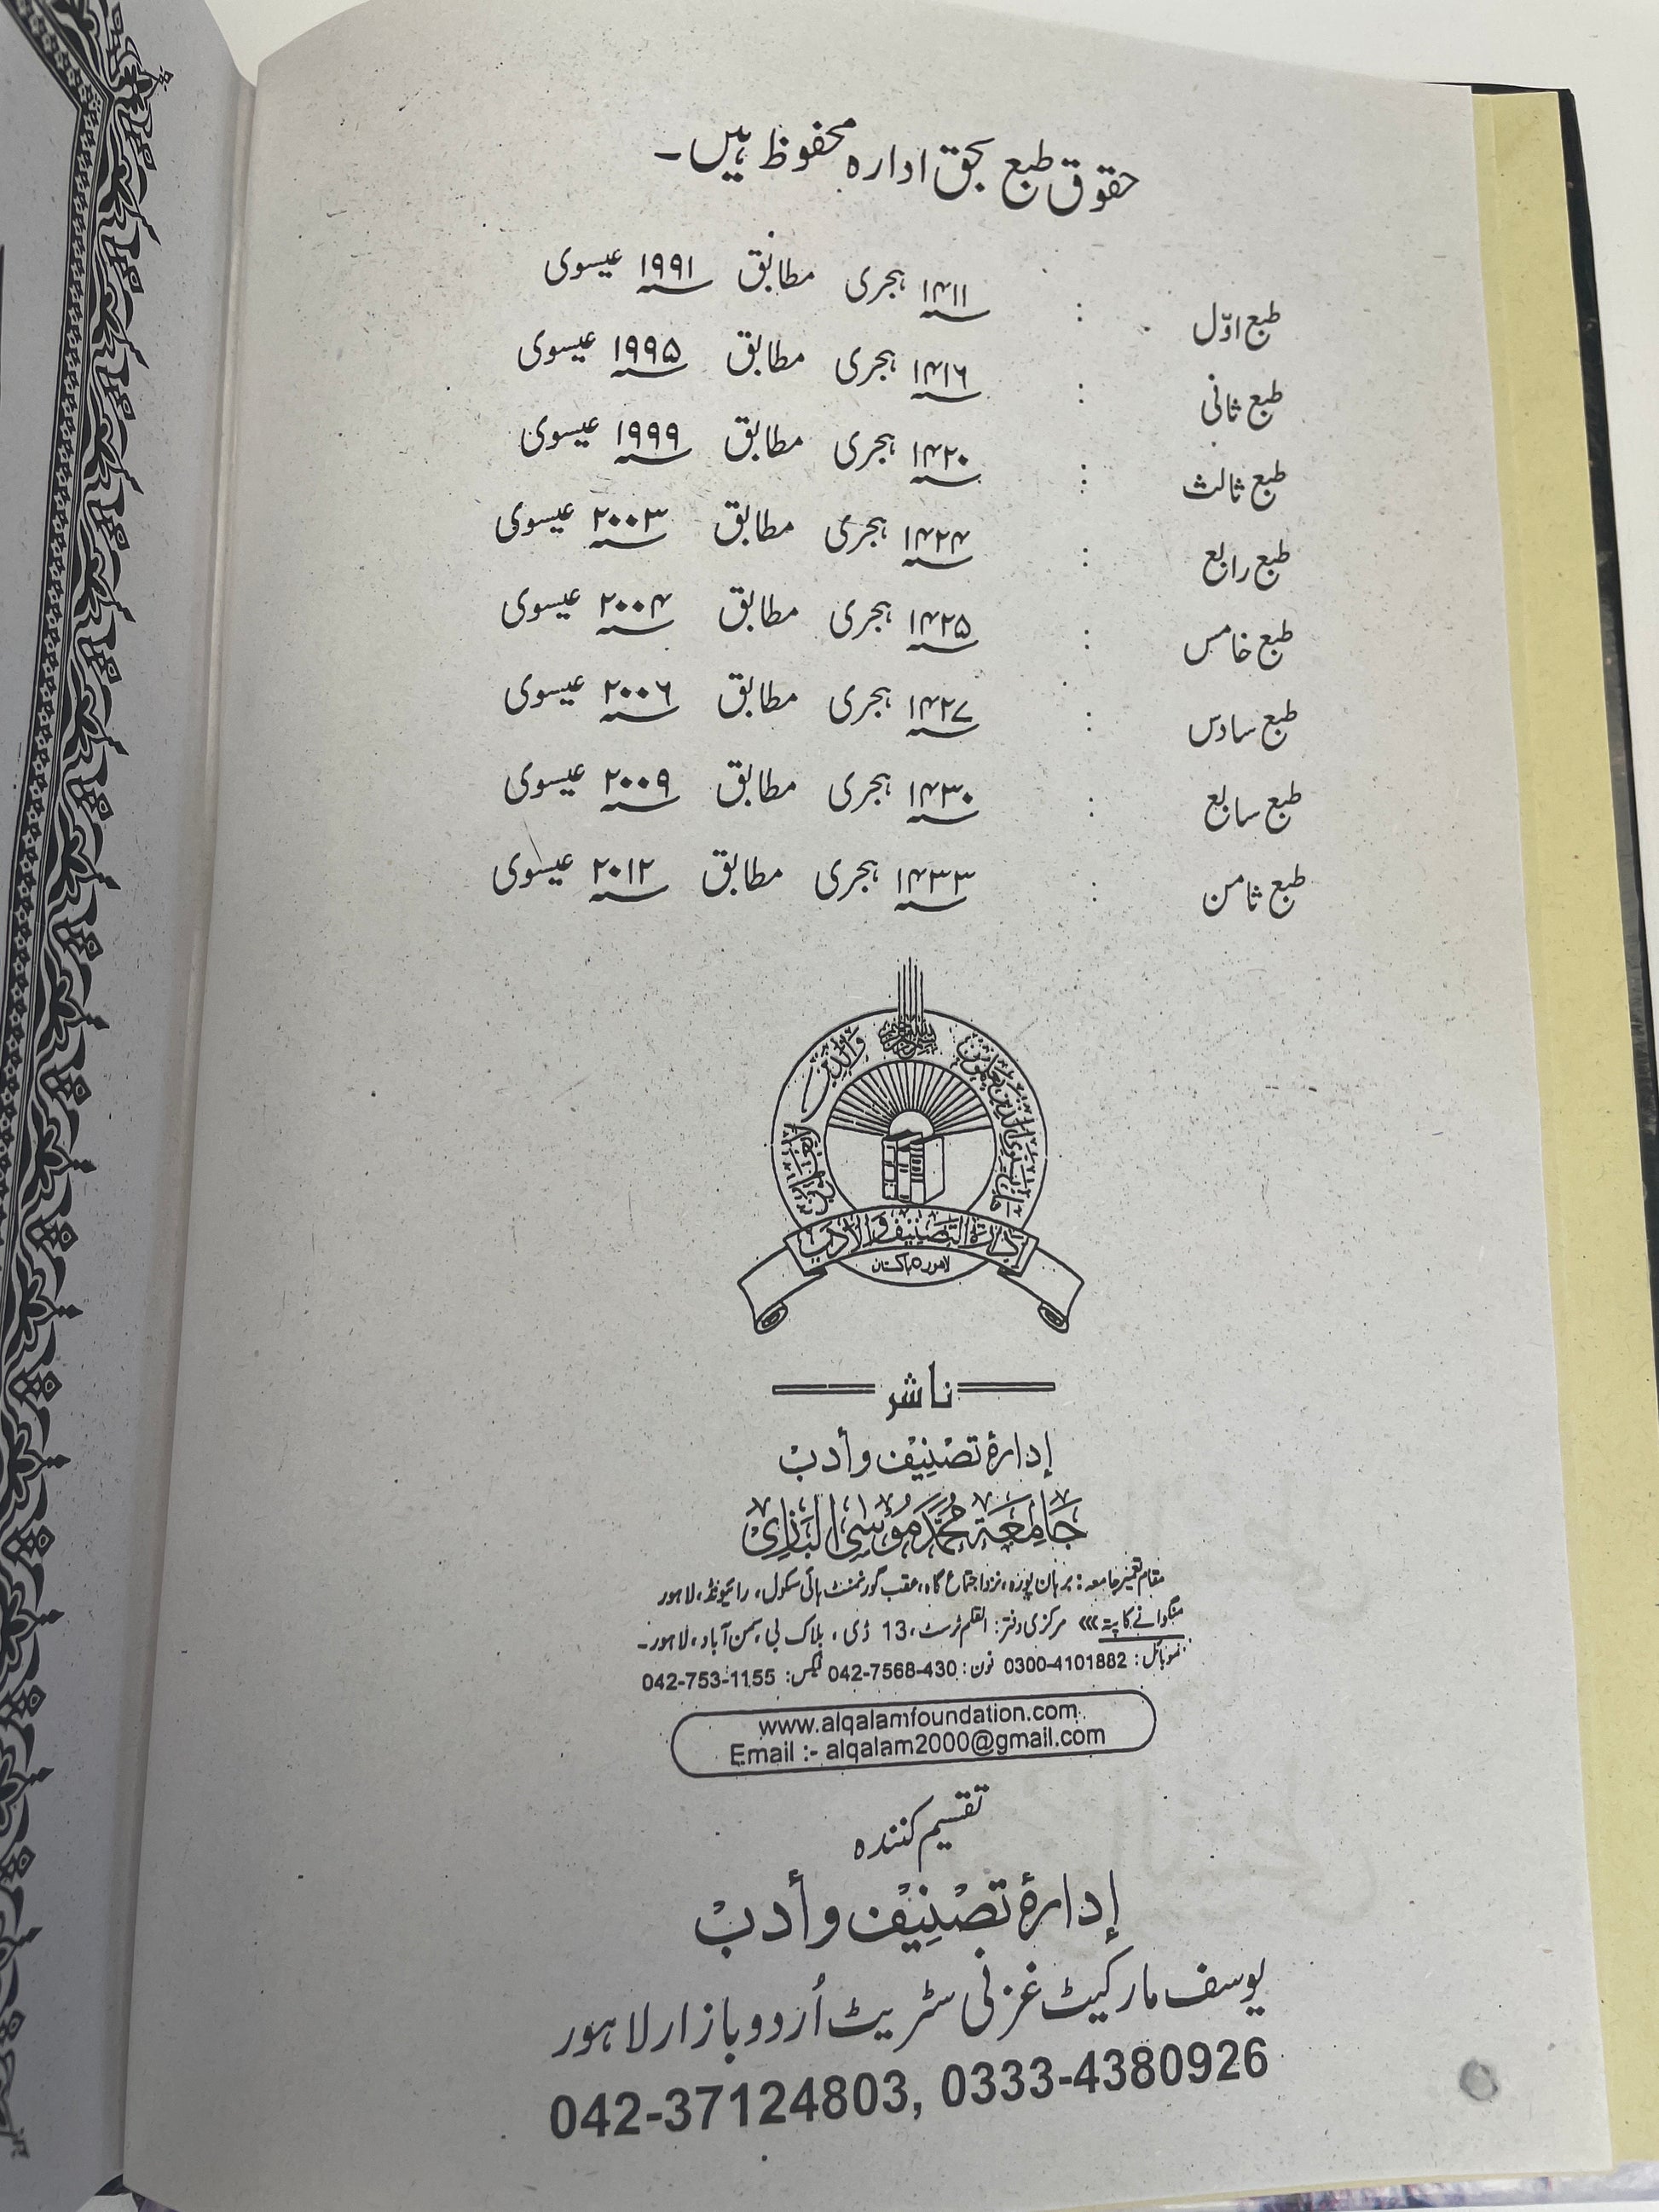 حقوق طبع بحق ادارہ محفوظ ہیں۔
طبع اوّل : ۱۴۱۱ ہجری مطابق ۱۹۹۱ عیسوی
طبع ثانی : ۱۴۱۶ ہجری مطابق ۱۹۹۵ عیسوی
طبع ثالث : ۱۴۲۰ ہجری مطابق ۱۹۹۹ عیسوی
طبع رابع : ۱۴۲۴ ہجری مطابق ۲۰۰۳ عیسوی
طبع خامس : ۱۴۲۵ ہجری مطابق ۲۰۰۴ عیسوی
طبع سادس : ۱۴۲۷ ہجری مطابق ۲۰۰۶ عیسوی
طبع سابع : ۱۴۳۰ ہجری مطابق ۲۰۰۹ عیسوی
طبع ثامن : ۱۴۳۳ ہجری مطابق ۲۰۱۲ عیسوی
إدارة التصنيف والأدب
لاهور باكستان
ناشر
إدارۂ تصْنِيْف وأدبْ
جَامِعَة مُحَمَّد مُوْسٰى البَازِى
مقام تعمیر جامعہ: برہان پورہ، نزد اجتماع گاہ، عقب گورنمنٹ ہائی سکول، رائیونڈ، لاہور
منگوانے کا پتہ ⟩⟩⟩ مرکزی دفتر: القلم ٹرسٹ، 13 ڈی، بلاک بی، سمن آباد، لاہور۔
موبائل: 0300-4101882 فون: 042-7568-430 فیکس: 042-753-1155
www.alqalamfoundation.com
Email :- alqalam2000@gmail.com
تقسیم کنندہ
إدارۂ تصْنِيْف وأدبْ
یوسف مارکیٹ غزنی سٹریٹ اُردو بازار لاہور
042-37124803, 0333-4380926